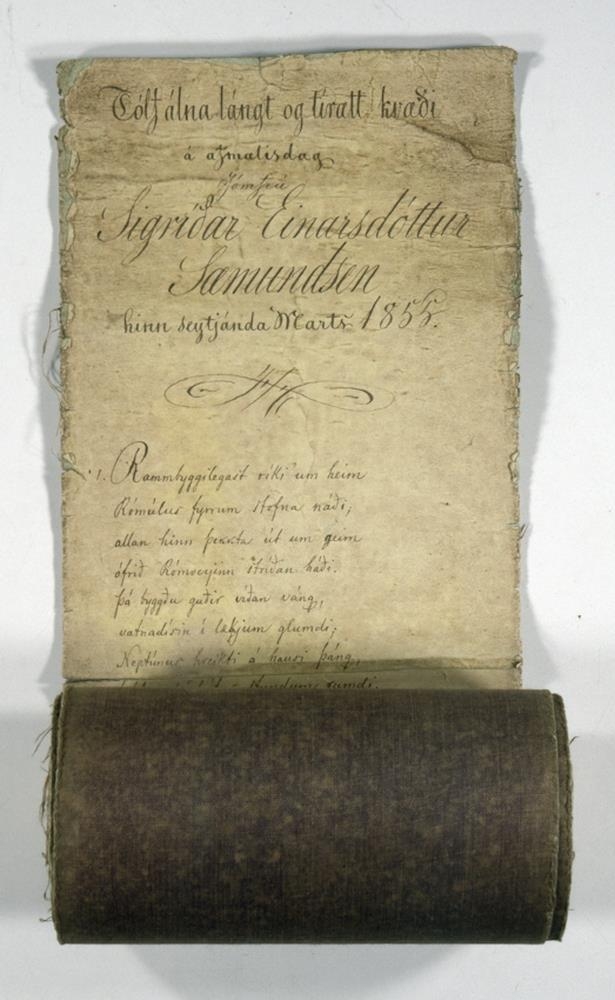 Tólf álna lángt og tírætt kvæði
á afmælisdag
Jómfrú
Sigríðar Einarsdóttur
Sæmundsen
hinn seytjánda Marts 1855.
1. Rammbyggilegast ríki um heim
Rómúlus fyrrum stofna náði;
allan hinn þekkta út um geim
ófrið Rómverjinn stríðan háði.
Þá byggðu guðir víðan váng,
vatnadísin í lækjum glumdi;
Neptúnus þreikti á hausi þáng,
rumdi.